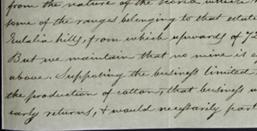 from the nature of the
some of the ranges belonging to that estate
Eulalia hills, from which upwards of 72
But we maintain that no mine is a
above. Supposing the business limited
the production of cotton, that business w
early returns, & would necessarily part